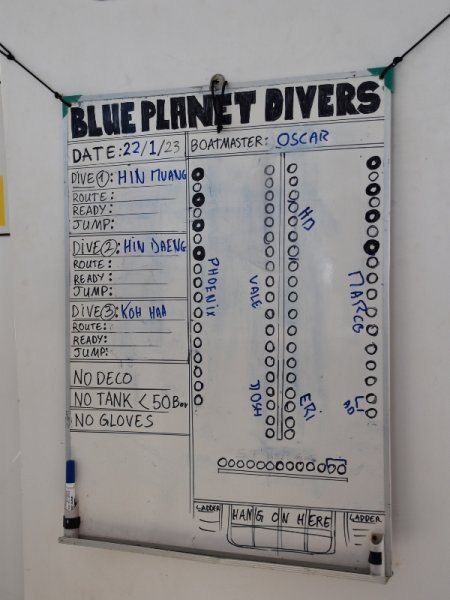 BLUE PLANET DIVERS
DATE: 22/1/23
BOATMASTER: OSCAR
DIVE ①: HIN MUANG
ROUTE:
READY:
JUMP:
DIVE ②: HIN DAENG
ROUTE:
READY:
JUMP:
DIVE ③: KOH HAA
ROUTE:
READY:
JUMP:
NO DECO
NO TANK < 50 Bar
NO GLOVES
PHOENIX
VALE
JOSH
HD
ERI
MARCO
LADDER
HANG ON HERE
LADDER